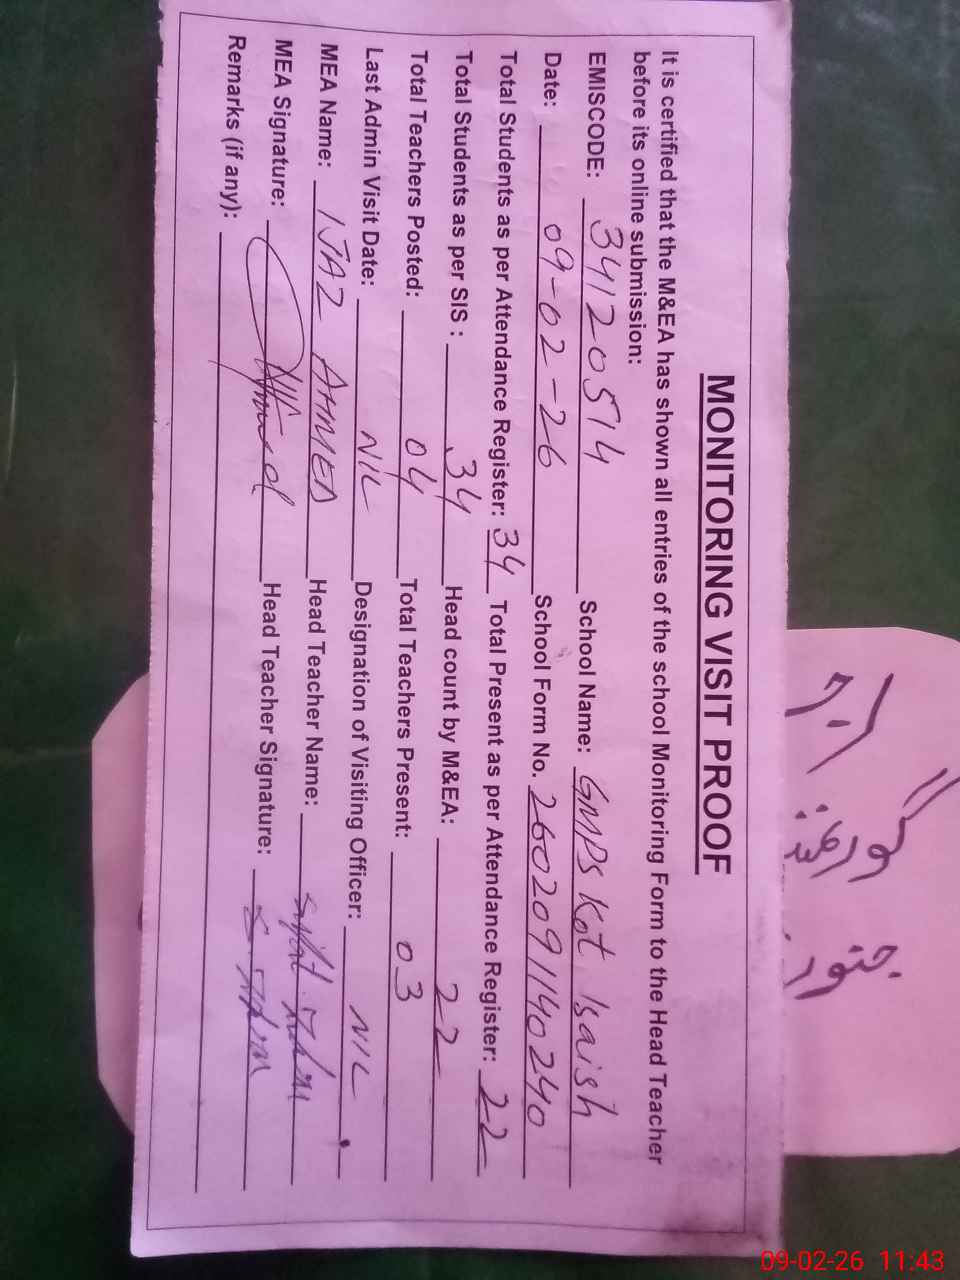 MONITORING VISIT PROOF
It is certified that the M&EA has shown all entries of the school Monitoring Form to the Head Teacher
before its online submission:
EMISCODE: 34120514 School Name: GMPS Kot Isaish
Date: 09-02-26 School Form No. 2602091140240
Total Students as per Attendance Register: 34 Total Present as per Attendance Register: 22
Total Students as per SIS : 34 Head count by M&EA: 22
Total Teachers Posted: 04 Total Teachers Present: 03
Last Admin Visit Date: NIL Designation of Visiting Officer: NIL
MEA Name: IJAZ AHMED Head Teacher Name:
MEA Signature: Head Teacher Signature:
Remarks (if any):
09-02-26 11:43